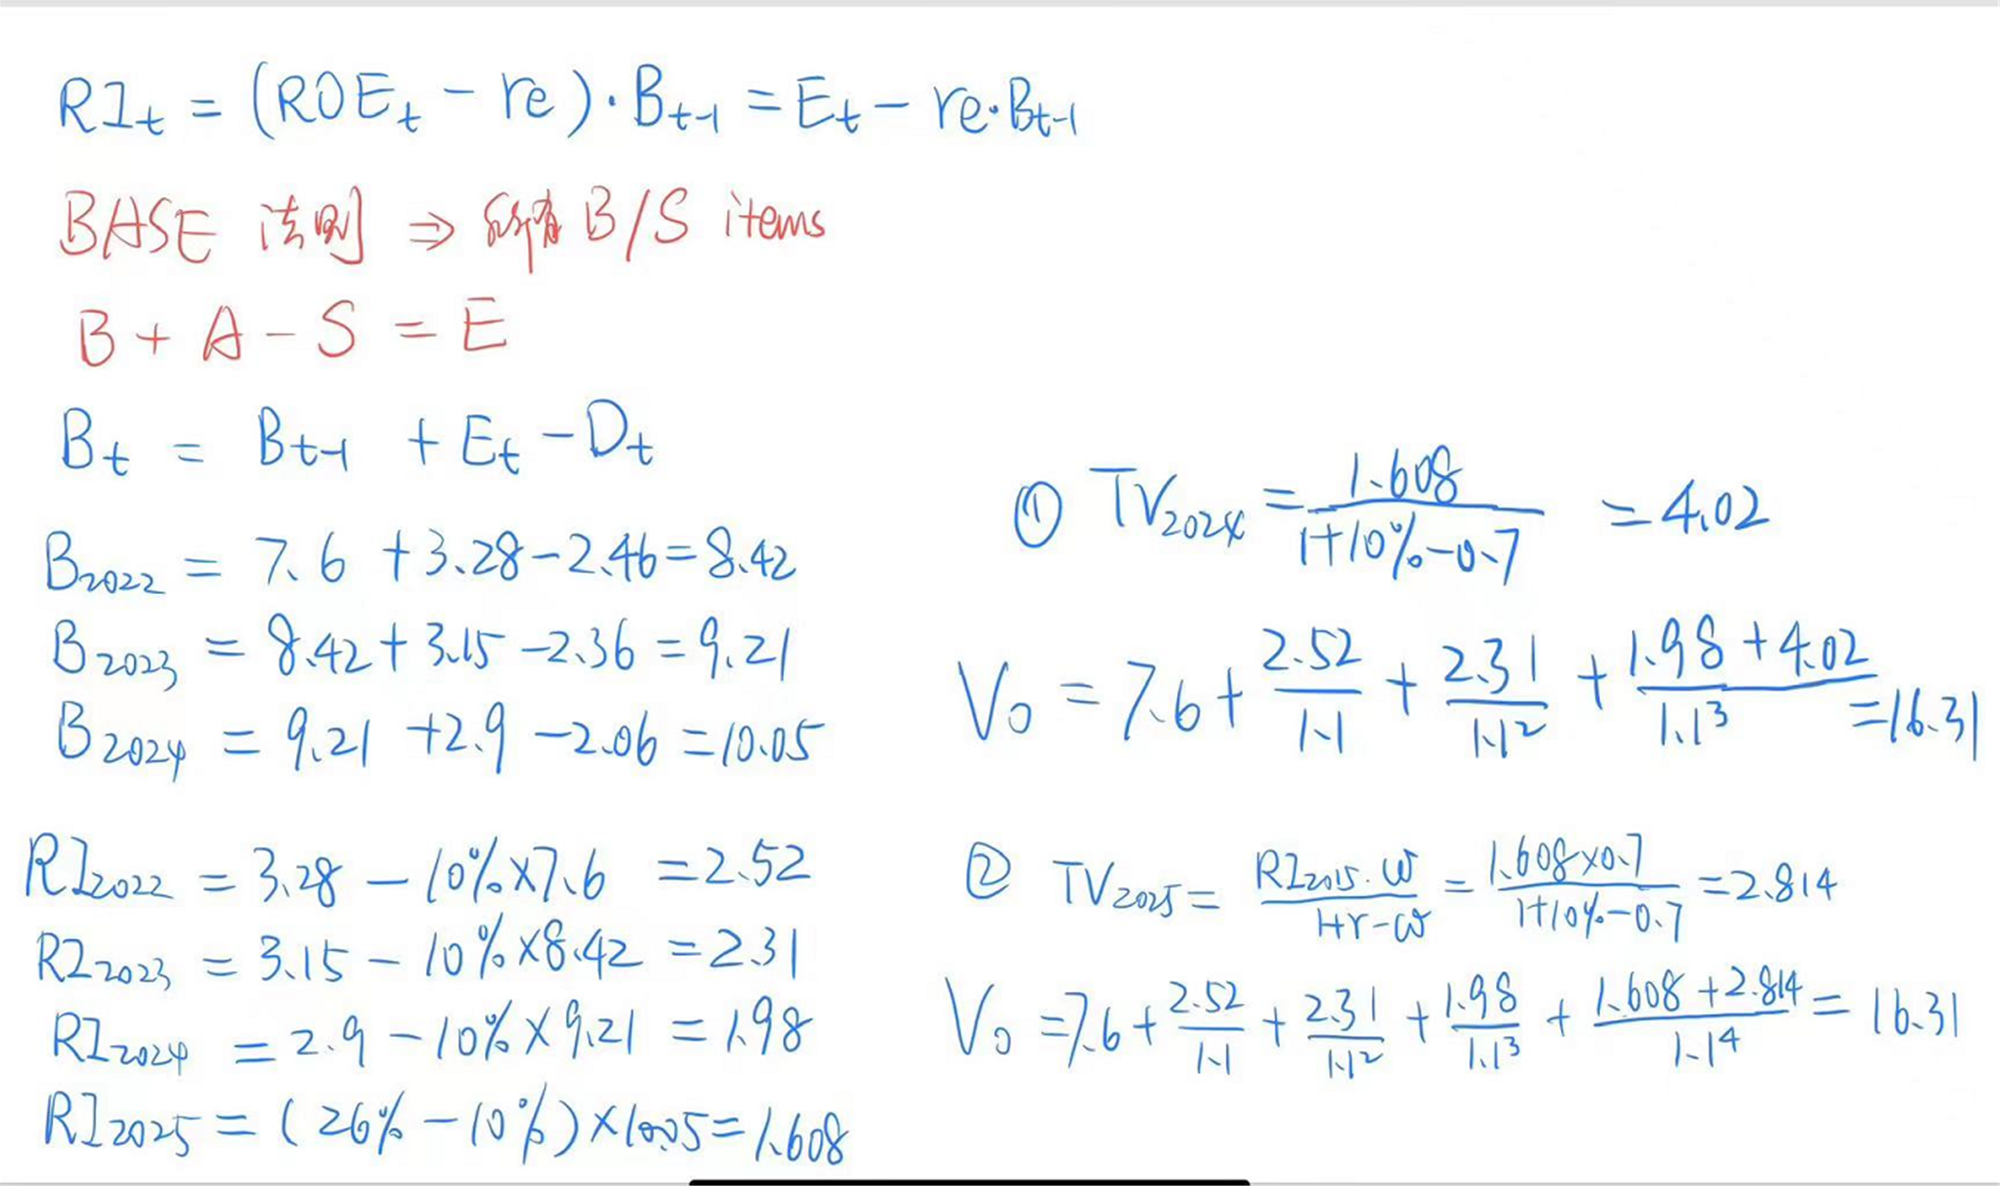 RI_t = (ROE_t - re)·B_t-1 = E_t - re·B_t-1
BASE 法则 ⇒ 所有 B/S items
B + A - S = E
B_t = B_t-1 + E_t - D_t
B_2022 = 7.6 + 3.28 - 2.46 = 8.42
B_2023 = 8.42 + 3.15 - 2.36 = 9.21
B_2024 = 9.21 + 2.9 - 2.06 = 10.05
RI_2022 = 3.28 - 10% × 7.6 = 2.52
RI_2023 = 3.15 - 10% × 8.42 = 2.31
RI_2024 = 2.9 - 10% × 9.21 = 1.98
RI_2025 = (26% - 10%) × 10.05 = 1.608
① TV_2024 = 1.608 / (1+10%-0.7) = 4.02
V_0 = 7.6 + 2.52/1.1 + 2.31/1.1² + (1.98+4.02)/1.1³ = 16.31
② TV_2025 = RI_2015·ω / (1+r-ω) = 1.608×0.7 / (1+10%-0.7) = 2.814
V_0 = 7.6 + 2.52/1.1 + 2.31/1.1² + 1.98/1.1³ + (1.608+2.814)/1.1⁴ = 16.31